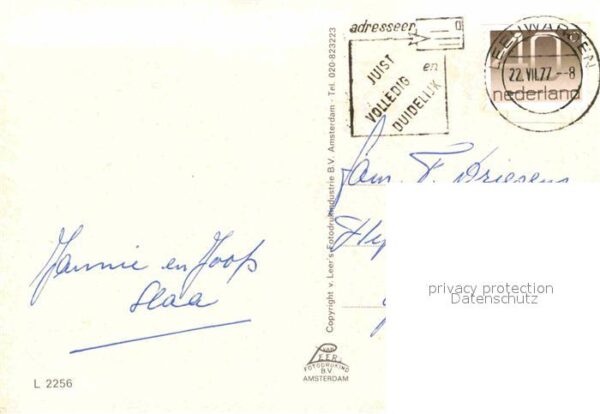 adresseer
JUIST
VOLLEDIG en
DUIDELIJK
LEEUWARDEN
10
22.VII.77.--8
nederland
Copyright v. Leer's Fotodrukindustrie B.V. Amsterdam - Tel. 020-823223
Fam. F. Driesens
Jannie en Joop
Slaa
privacy protection
Datenschutz
VAN
LEER's
FOTODRUKIND
B.V.
AMSTERDAM
L 2256